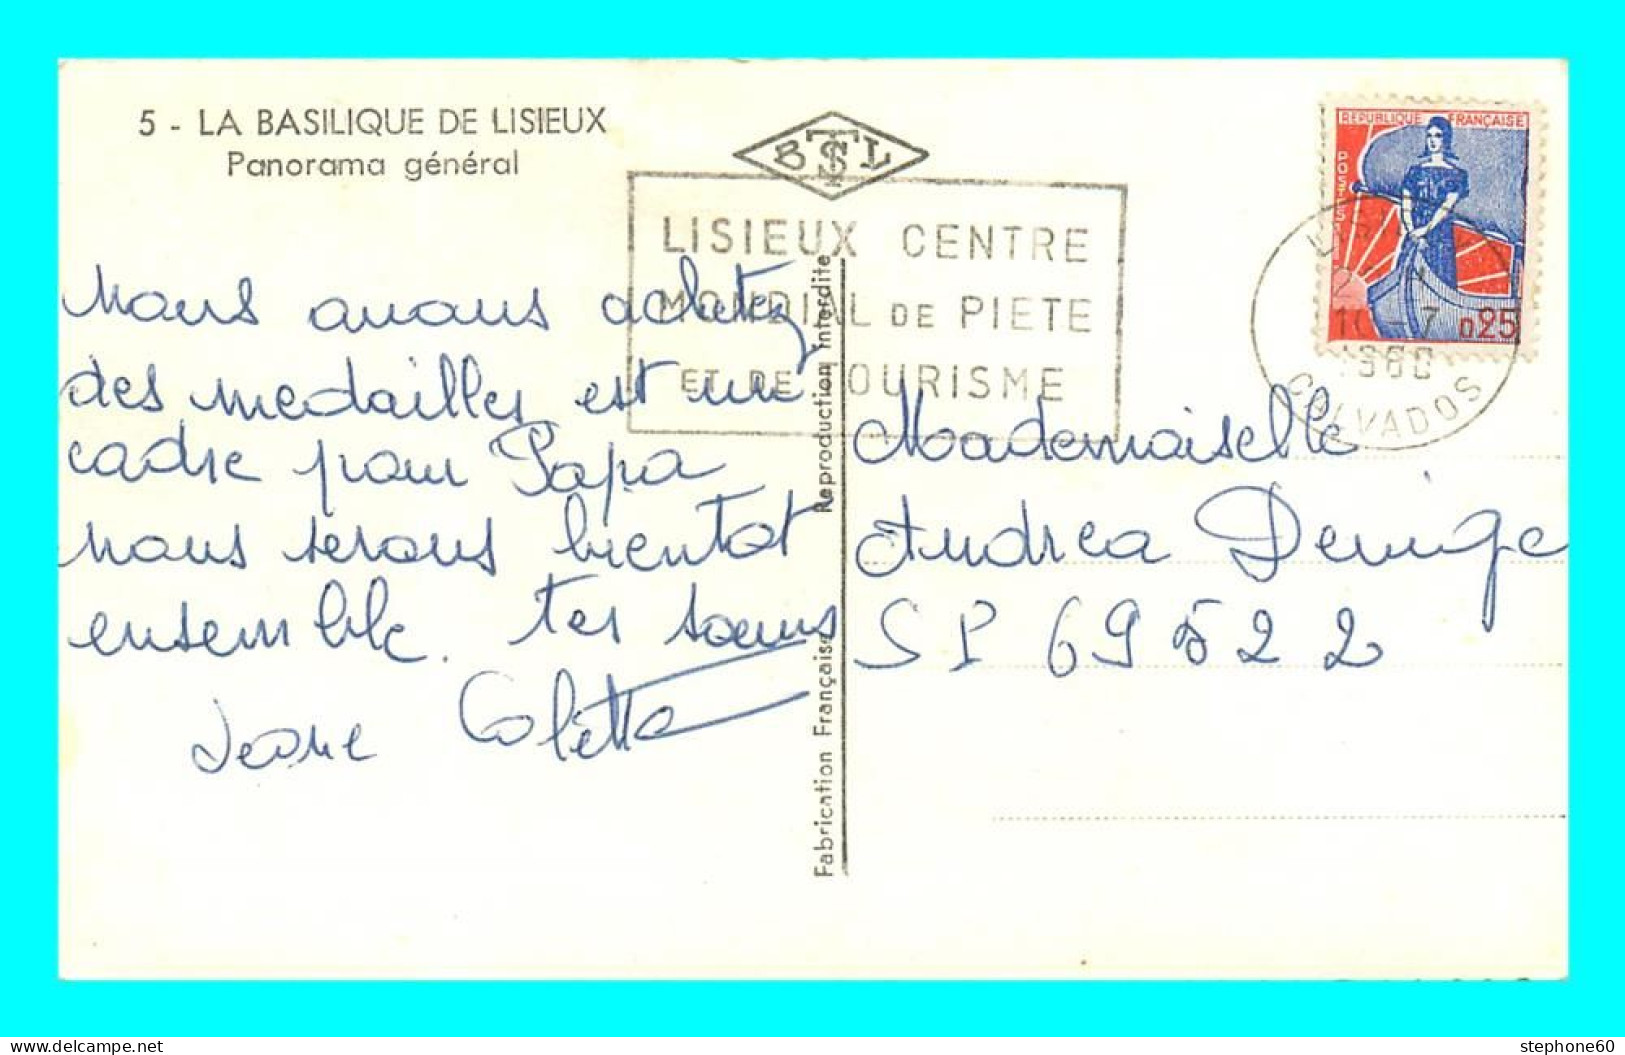 5 - LA BASILIQUE DE LISIEUX
Panorama général
BTSL
LISIEUX CENTRE
MONDIAL DE PIETE
ET DE TOURISME
REPUBLIQUE FRANÇAISE
POSTES
0,25
LISIEUX
10-7
1960
CALVADOS
Nous avons achetez
des medailles est une
cadre pour Papa
nous serons bientot
ensemble. tes soeurs
Jeane Colette
Reproduction Interdite
Fabrication Française
Mademoiselle
Andrea Denige
SP 69522
stephone60